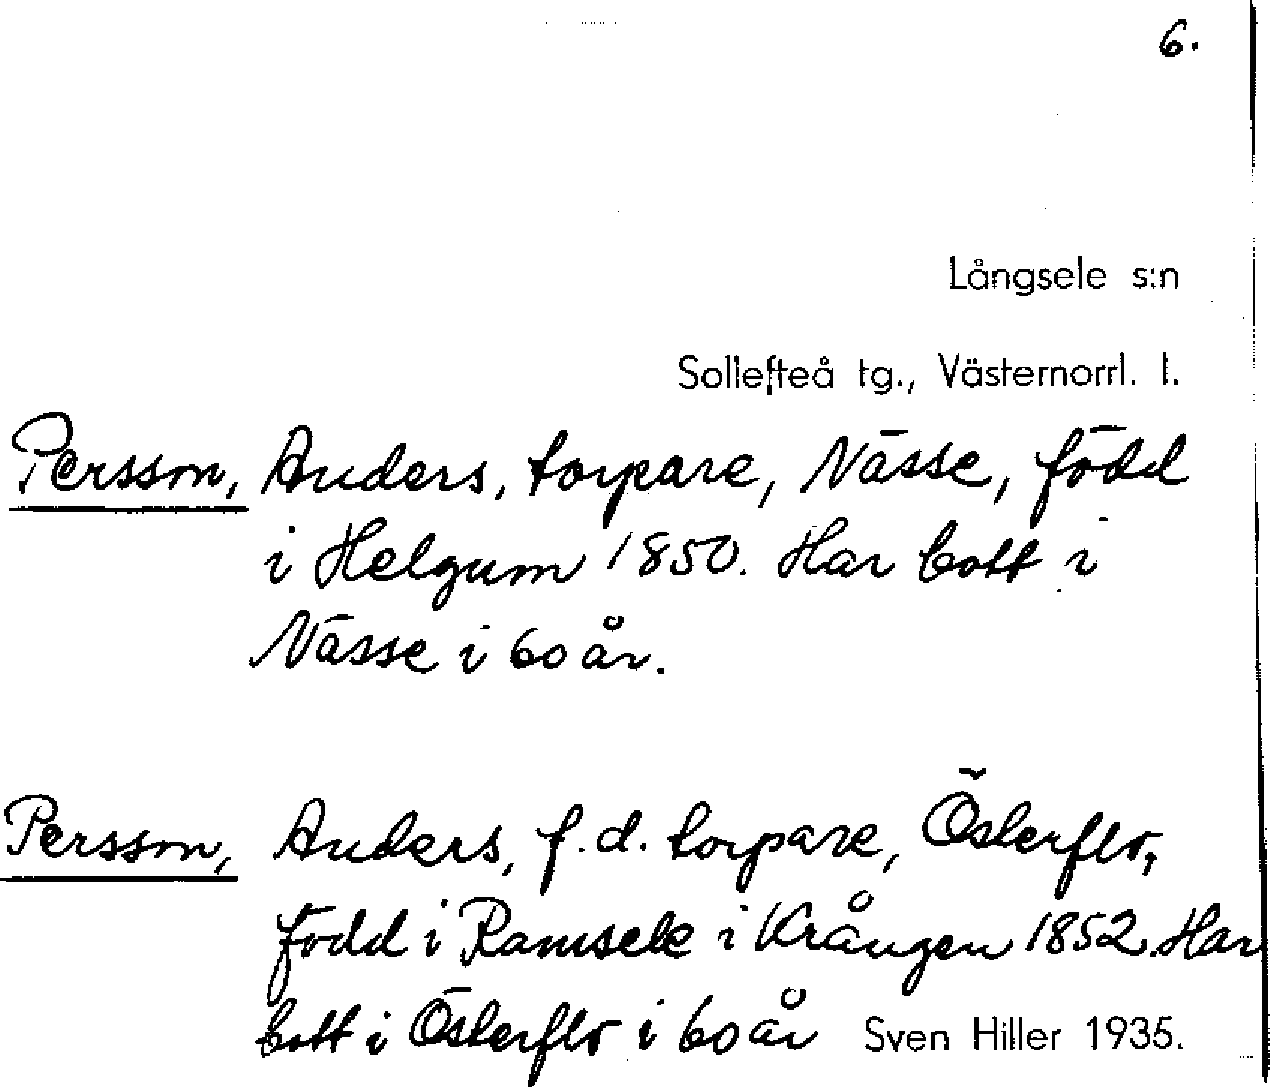 6.
Långsele s:n
Sollefteå tg., Västernorrl. l.
Persson, Anders, torpare, Nässe, född
i Helgum 1850. Har bott i
Nässe i 60 år.
Persson, Anders, f.d. torpare, Österflo,
född i Ramsele i Krången 1852. Har
bott i Österflo i 60 år Sven Hiller 1935.